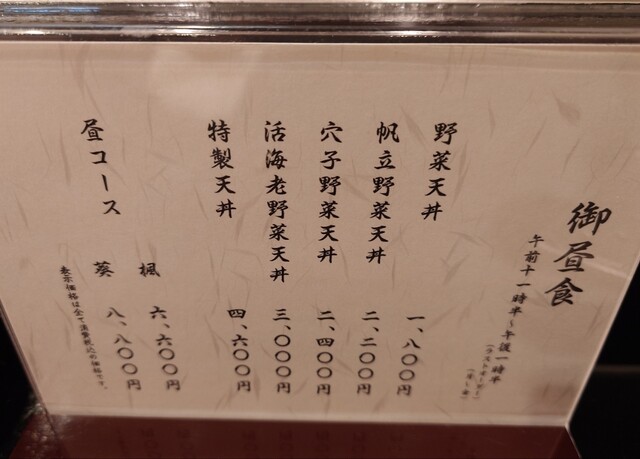 御昼食
午前十一時半～午後一時半
(ラストオーダー)
野菜天丼 一、八〇〇円
帆立野菜天丼 二、二〇〇円
穴子野菜天丼 二、四〇〇円
活海老野菜天丼 三、〇〇〇円
特製天丼 四、六〇〇円
昼コース
楓 六、六〇〇円
葵 八、八〇〇円
表示価格は全て消費税込の価格です。